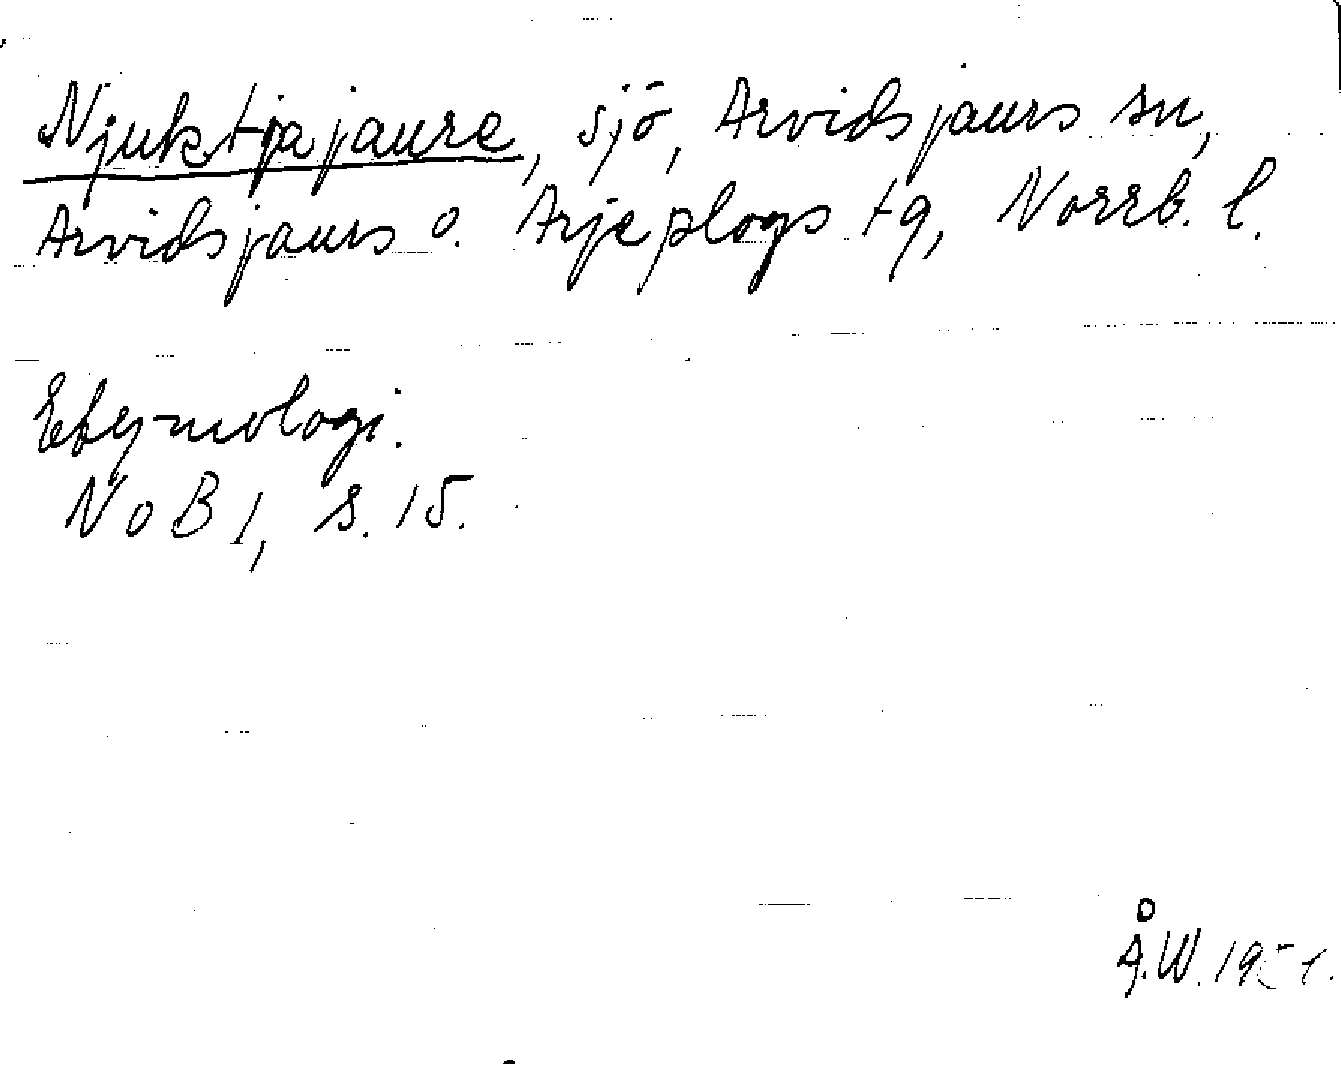 Njuktjajaure, sjö, Arvidsjaurs sn,
Arvidsjaurs o. Arjeplogs tg, Norrb. l.
Etymologi.
NoB 1, s. 15.
Å.W. 1951.